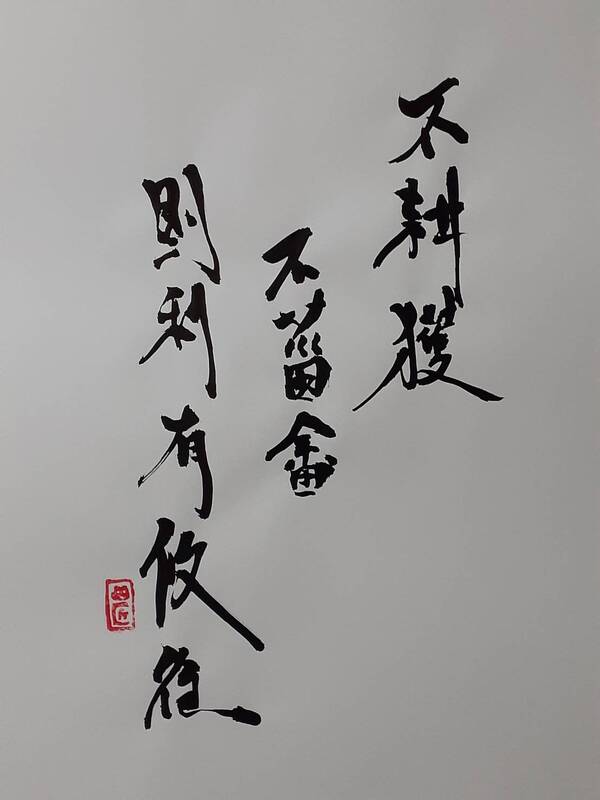 不耕獲
不菑畬
則利有攸往